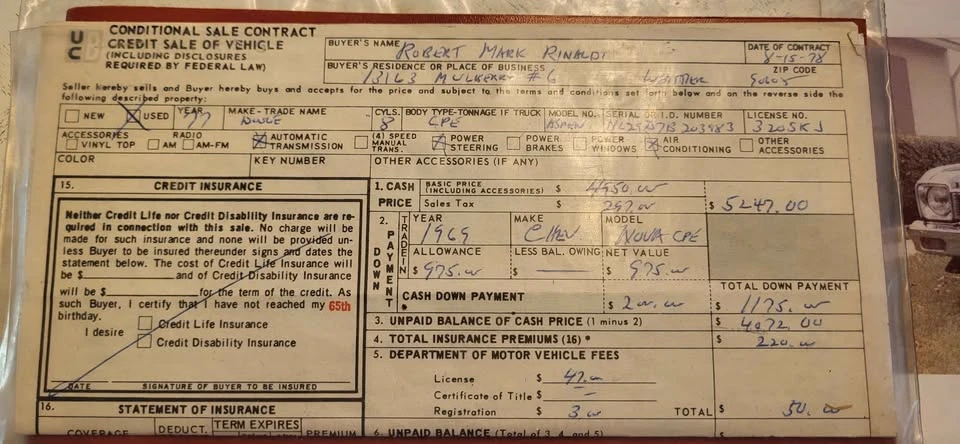 UC
CONDITIONAL SALE CONTRACT
CREDIT SALE OF VEHICLE
(INCLUDING DISCLOSURES
REQUIRED BY FEDERAL LAW)
BUYER'S NAME ROBERT MARK RINALDI
DATE OF CONTRACT
8-15-78
BUYER'S RESIDENCE OR PLACE OF BUSINESS
ZIP CODE
13163 MULBERRY #6 WHITTIER
Seller hereby sells and Buyer hereby buys and accepts for the price and subject to the terms and conditions set forth below and on the reverse side the
following described property:
NEW USED YEAR MAKE-TRADE NAME CYLS. BODY TYPE-TONNAGE IF TRUCK MODEL NO. SERIAL OR I.D. NUMBER LICENSE NO.
77 DODGE 8 CPE ASPEN
ACCESSORIES VINYL TOP RADIO AM AM-FM AUTOMATIC TRANSMISSION (4) SPEED MANUAL TRANS. POWER STEERING POWER BRAKES POWER WINDOWS AIR CONDITIONING OTHER ACCESSORIES
COLOR KEY NUMBER OTHER ACCESSORIES (IF ANY)
15. CREDIT INSURANCE
Neither Credit Life nor Credit Disability Insurance are re-
quired in connection with this sale. No charge will be
made for such insurance and none will be provided un-
less Buyer to be insured thereunder signs and dates the
statement below. The cost of Credit Life Insurance will
be $ and of Credit Disability Insurance
will be $ for the term of the credit. As
such Buyer, I certify that I have not reached my 65th
birthday.
I desire
Credit Life Insurance
Credit Disability Insurance
DATE SIGNATURE OF BUYER TO BE INSURED
16. STATEMENT OF INSURANCE
COVERAGE DEDUCT. TERM EXPIRES PREMIUM
1. CASH PRICE
BASIC PRICE (INCLUDING ACCESSORIES) $ 4950.00
Sales Tax 297.00 $ 5247.00
2. DOWN PAYMENT
TRADE IN
YEAR MAKE MODEL
1969 CHEV NOVA CPE
ALLOWANCE LESS BAL. OWING NET VALUE
$ 975.00 $ — $ 975.00
TOTAL DOWN PAYMENT
CASH DOWN PAYMENT * $ 200.00 $ 1175.00
3. UNPAID BALANCE OF CASH PRICE (1 minus 2) $ 4072.00
4. TOTAL INSURANCE PREMIUMS (16) * $ 220.00
5. DEPARTMENT OF MOTOR VEHICLE FEES
License $ 47.00
Certificate of Title $ —
Registration $ 3.00 TOTAL $ 50.00
6. UNPAID BALANCE (Total of 3, 4, and 5)